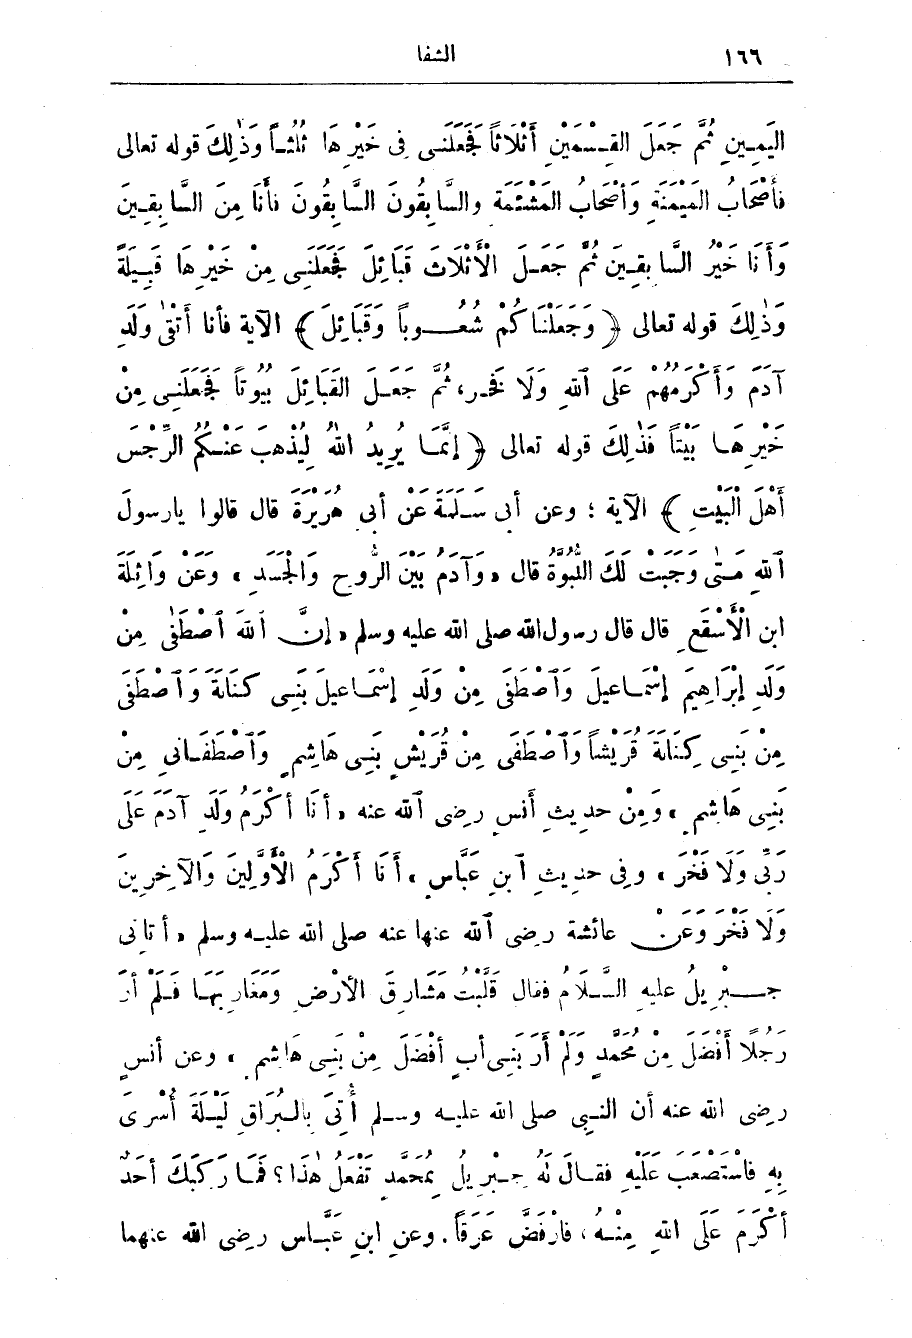 ١٦٦ الشفا
اليَمِينِ ثُمَّ جَعَلَ القِسْمَيْنِ أَثْلَاثاً فَجَعَلَنِى فِى خَيْرِهَا ثُلُثاً وَذٰلِكَ قوله تعالى
فأَصْحَابُ المَيْمَنَةِ وَأَصْحَابُ المَشْئَمَة والسَّابِقُونَ السَّابِقُونَ فَأَنَا مِنَ السَّابِقِينَ
وَأَنَا خَيْرُ السَّابِقِينَ ثُمَّ جَعَلَ الْأَثْلَاثَ قَبَائِلَ فَجَعَلَنِى مِنْ خَيْرِهَا قَبِيلَةً
وَذٰلِكَ قوله تعالى ﴿ وَجَعَلْنَاكُمْ شُعُوباً وَقَبَائِلَ ﴾ الآية فأنا أَتْقَى وَلَدِ
آدَمَ وَأَكْرَمُهُمْ عَلَى ٱللهِ وَلَا فَخْرَ، ثُمَّ جَعَلَ القَبَائِلَ بُيُوتاً فَجَعَلَنِى مِنْ
خَيْرِهَا بَيْتاً فَذٰلِكَ قوله تعالى ﴿ إِنَّمَا يُرِيدُ اللهُ لِيُذْهِبَ عَنْكُمُ الرِّجْسَ
أَهْلَ الْبَيْتِ ﴾ الآية ؛ وعن أَبى سَلَمَةَ عَنْ أَبى هُرَيْرَةَ قال قالوا يارسولَ
ٱللهِ مَتَى وَجَبَتْ لَكَ النُّبُوَّةُ قال « وَآدَمُ بَيْنَ الرُّوحِ وَالْجَسَدِ » وَعَنْ وَاثِلَةَ
ابن الْأَسْقَعِ قال قال رسول الله صلى الله عليه وسلم « إِنَّ ٱللهَ ٱصْطَفَى مِنْ
وَلَدِ إِبْرَاهِيمَ إِسْمَاعِيلَ وَٱصْطَفَى مِنْ وَلَدِ إِسْمَاعِيلَ بَنِى كِنَانَةَ وَٱصْطَفَى
مِنْ بَنِى كِنَانَةَ قُرَيْشاً وَٱصْطَفَى مِنْ قُرَيْشٍ بَنِى هَاشِمٍ وَٱصْطَفَانِى مِنْ
بَنِى هَاشِمٍ » وَمِنْ حديثِ أَنَسٍ رضى ٱلله عنه « أَنَا أَكْرَمُ وَلَدِ آدَمَ عَلَى
رَبِّى وَلَا فَخْرَ » وفى حديثِ ٱبنِ عَبَّاسٍ « أَنَا أَكْرَمُ الْأَوَّلِينَ وَالآخِرِينَ
وَلَا فَخْرَ وَعَنْ عائشة رضى ٱلله عنها عنه صلى الله عليه وسلم « أتانى
جِبْرِيلُ عليهِ السَّلَامُ فقال قَلَّبْتُ مَشَارِقَ الأَرْضِ وَمَغَارِبَهَا فَلَمْ أَرَ
رَجُلًا أَفْضَلَ مِنْ مُحَمَّدٍ وَلَمْ أَرَ بَنِى أبٍ أَفْضَلَ مِنْ بَنِى هَاشِمٍ » وعن أنسٍ
رضى الله عنه أن النبى صلى الله عليه وسلم أُتِىَ بالبُرَاقِ لَيْلَةَ أُسْرِىَ
بِهِ فَاسْتَصْعَبَ عَلَيْهِ فقالَ لَهُ جِبْرِيلُ بِمُحَمَّدٍ تَفْعَلُ هٰذَا ؟ فَمَا رَكِبَكَ أَحَدٌ
أَكْرَمَ عَلَى اللهِ مِنْهُ، فَارْفَضَّ عَرَقاً. وعنِ ابنِ عَبَّاس رضى الله عنهما